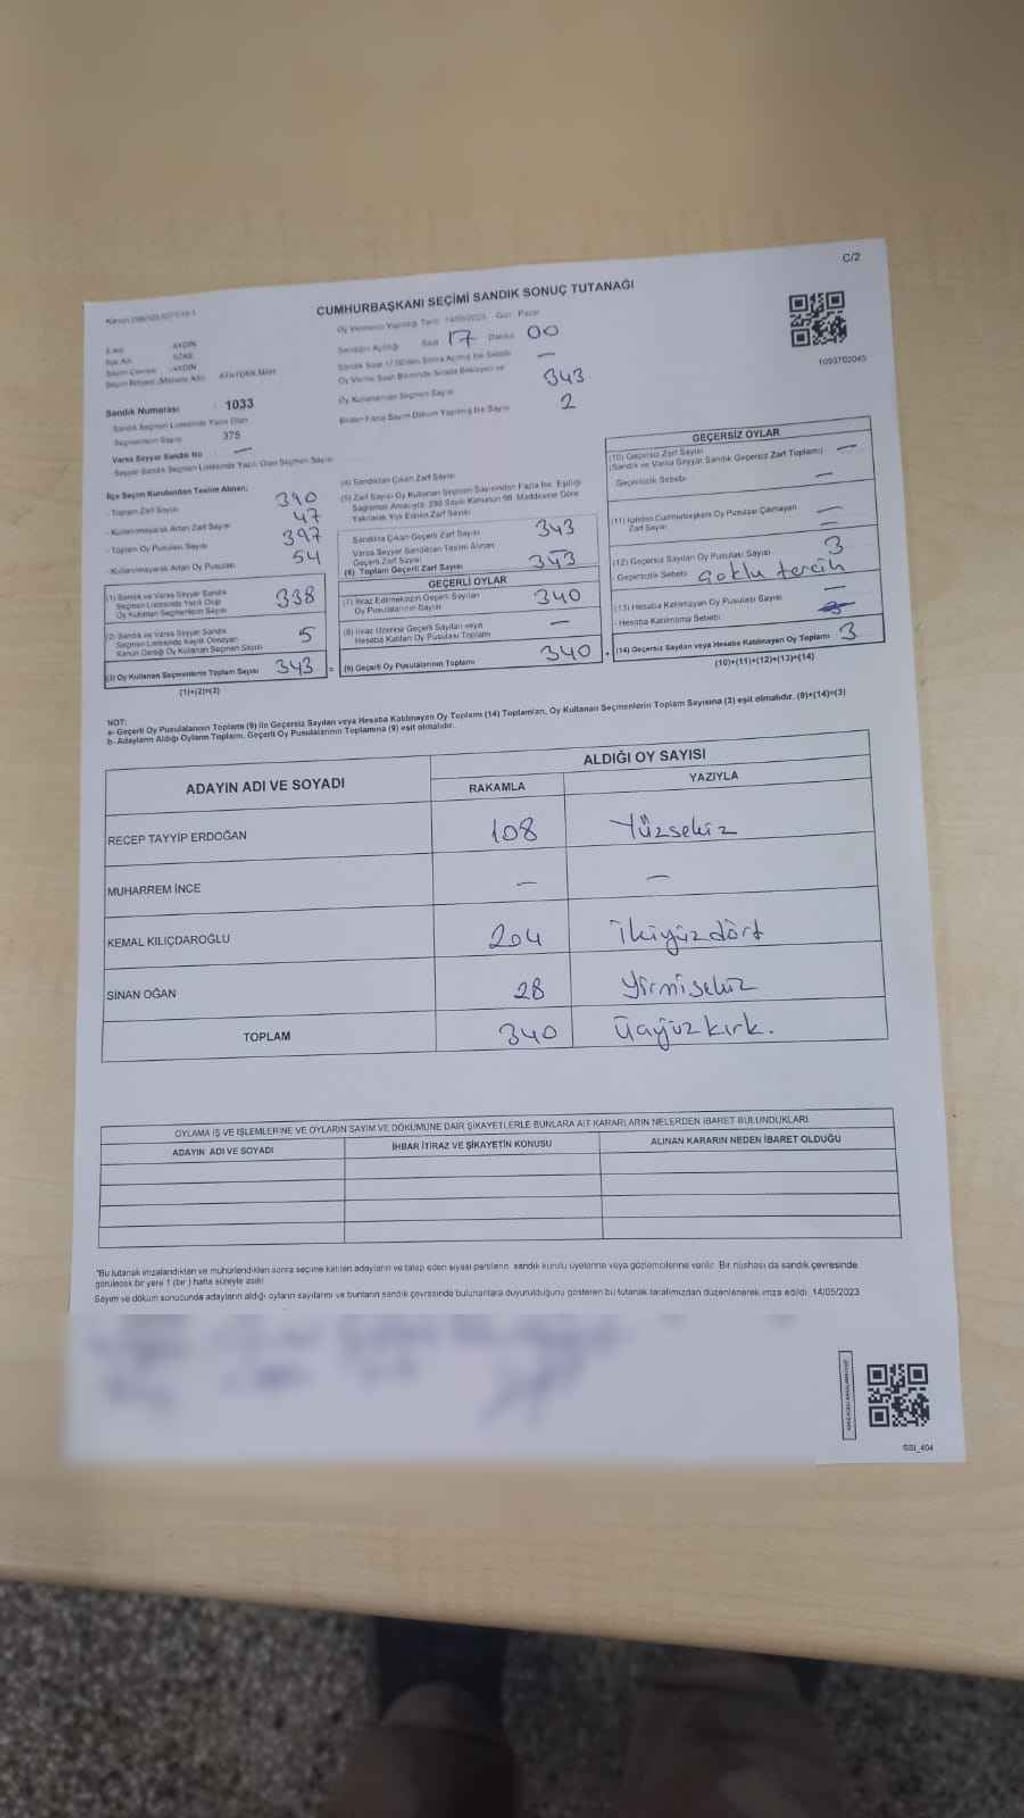 C/2
CUMHURBAŞKANI SEÇİMİ SANDIK SONUÇ TUTANAĞI
Oy Vermenin Yapıldığı Tarih: 14/05/2023 Gün: Pazar
Sandığın Açılışı Saat 17 Dakika 00
—
Oy Kullananların Seçmen Sayısı 343
Birden Fazla Sayım Döküm Yapılmış İse Sayısı 2
1093702045
AYDIN
AYDIN
Sandık Numarası : 1033
Seçmenlerin Sayısı 375
Varsa Seyyar Sandık No —
Seyyar Sandık Seçmen Listesinde Yazılı Olan Seçmen Sayısı
İlçe Seçim Kurulundan Teslim Alınan;
- Toplam Zarf Sayısı 390
- Kullanılmayarak Artan Zarf Sayısı 47
- Toplam Oy Pusulası Sayısı 397
- Kullanılmayarak Artan Oy Pusulası 54
(1) Sandık ve Varsa Seyyar Sandık
Seçmen Listesinde Yazılı Olup
Oy Kullanan Seçmenlerin Sayısı 338
(2) Sandık ve Varsa Seyyar Sandık
Seçmen Listesinde Kayıtlı Olmayan
Kanun Gereği Oy Kullanan Seçmen Sayısı 5
(3) Oy Kullanan Seçmenlerin Toplam Sayısı 343 =
(1)+(2)=(3)
(4) Sandıktan Çıkan Zarf Sayısı
(5) Zarf Sayısı Oy Kullanan Seçmen Sayısından Fazla İse, Eşitliği
Sağlamak Amacıyla 298 Sayılı Kanunun 98. Maddesine Göre
Yakılarak Yok Edilen Zarf Sayısı
Sandıkta Çıkan Geçerli Zarf Sayısı 343
Varsa Seyyar Sandıktan Teslim Alınan
Geçerli Zarf Sayısı
(6) Toplam Geçerli Zarf Sayısı 343
GEÇERLİ OYLAR
(7) İtiraz Edilmeksizin Geçerli Sayılan
Oy Pusulalarının Sayısı 340
(8) İtiraz Üzerine Geçerli Sayılan veya
Hesaba Katılan Oy Pusulası Toplamı —
(9) Geçerli Oy Pusulalarının Toplamı 340 +
GEÇERSİZ OYLAR
(10) Geçersiz Zarf Sayısı
(Sandık ve Varsa Seyyar Sandık Geçersiz Zarf Toplamı) —
Geçersizlik Sebebi —
(11) İçinden Cumhurbaşkanı Oy Pusulası Çıkmayan
Zarf Sayısı —
(12) Geçersiz Sayılan Oy Pusulası Sayısı 3
- Geçersizlik Sebebi Çoklu tercih
(13) Hesaba Katılmayan Oy Pusulası Sayısı —
- Hesaba Katılmama Sebebi
(14) Geçersiz Sayılan veya Hesaba Katılmayan Oy Toplamı 3
(10)+(11)+(12)+(13)=(14)
NOT:
a- Geçerli Oy Pusulalarının Toplamı (9) ile Geçersiz Sayılan veya Hesaba Katılmayan Oy Toplamı (14) Toplamları, Oy Kullanan Seçmenlerin Toplam Sayısına (3) eşit olmalıdır. (9)+(14)=(3)
b- Adayların Aldığı Oyların Toplamı, Geçerli Oy Pusulalarının Toplamına (9) eşit olmalıdır.
ADAYIN ADI VE SOYADI
ALDIĞI OY SAYISI
RAKAMLA YAZIYLA
RECEP TAYYİP ERDOĞAN 108 Yüzsekiz
MUHARREM İNCE — —
KEMAL KILIÇDAROĞLU 204 İkiyüzdört
SİNAN OĞAN 28 Yirmisekiz
TOPLAM 340 Üçyüzkırk.
OYLAMA İŞ VE İŞLEMLERİNE VE OYLARIN SAYIM VE DÖKÜMÜNE DAİR ŞİKAYETLERLE BUNLARA AİT KARARLARIN NELERDEN İBARET BULUNDUKLARI
ADAYIN ADI VE SOYADI İHBAR İTİRAZ VE ŞİKAYETİN KONUSU ALINAN KARARIN NEDEN İBARET OLDUĞU
"Bu tutanak imzalandıktan ve mühürlendikten sonra seçime katılan adayların ve talep eden siyasi partilerin, sandık kurulu üyelerine veya gözlemcilerine verilir. Bir nüshası da sandık çevresinde
görülecek bir yere 1 (bir ) hafta süreyle asılır.
Sayım ve döküm sonucunda adayların aldığı oyların sayılarını ve bunların sandık çevresinde bulunanlara duyurulduğunu gösteren bu tutanak tarafımızdan düzenlenerek imza edildi. 14/05/2023
SSI_404